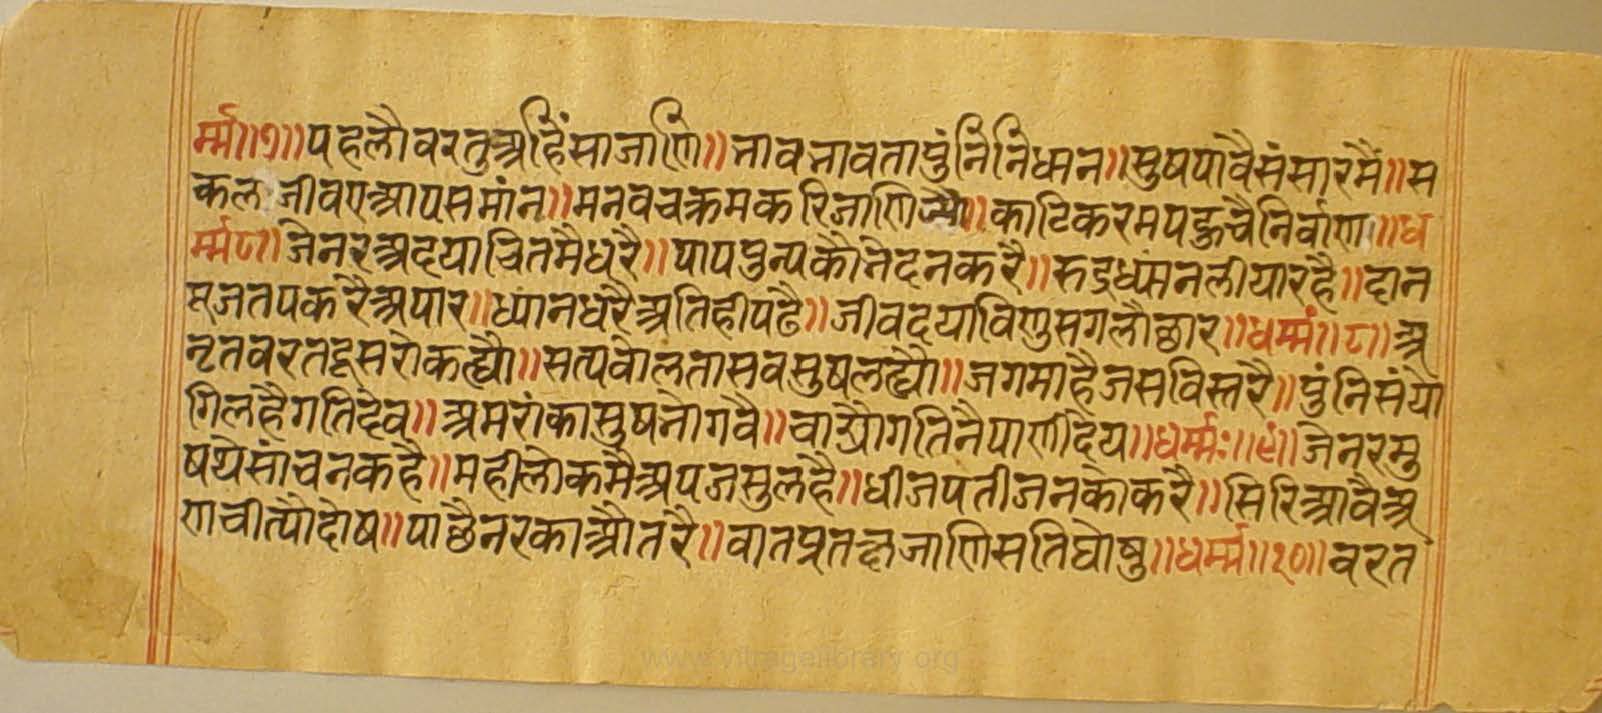 र्म्म॥७॥पहलौवरतुअहिंसाजाणि॥नावनावतापुंनिनिधान॥सुषपावैसंसारमैं॥स
कलजीवएआपसमांन॥मनवचक्रमकरिजाणि॥काटिकरमपहुचैनिर्वाण॥ध
र्म्म॥जेनरअदयाचितमैधरै॥पापपुन्यकौनेदनकरै॥रुद्रध्यंमनलीयारहै॥दान
तपकरैअपार॥ध्यांनधरैअतिहीपढै॥जीवदयाविणुसगलौछार॥धर्म्मं॥८॥अ
नृतवरतदूसरोकह्यौ॥सत्पवोलतासवसुषलह्यौ॥जगमाहैजसविस्तरै॥पुंनिसंयो
गिलहैगतिदेव॥अमरांकासुषनोगवै॥गतिनैपाणीदेय॥धर्म्मः॥९॥जेनरमु
षथेसांचनकहै॥महीलोकमैअपजसुलहै॥धीजपतीजनकोकरै॥सिरिआवैअ
णचीत्यौदोष॥पाछैनरकाऔतरै॥वातजाणिसतिघोषु॥धर्म्म॥१०॥वरत
www.vitragelibrary.org